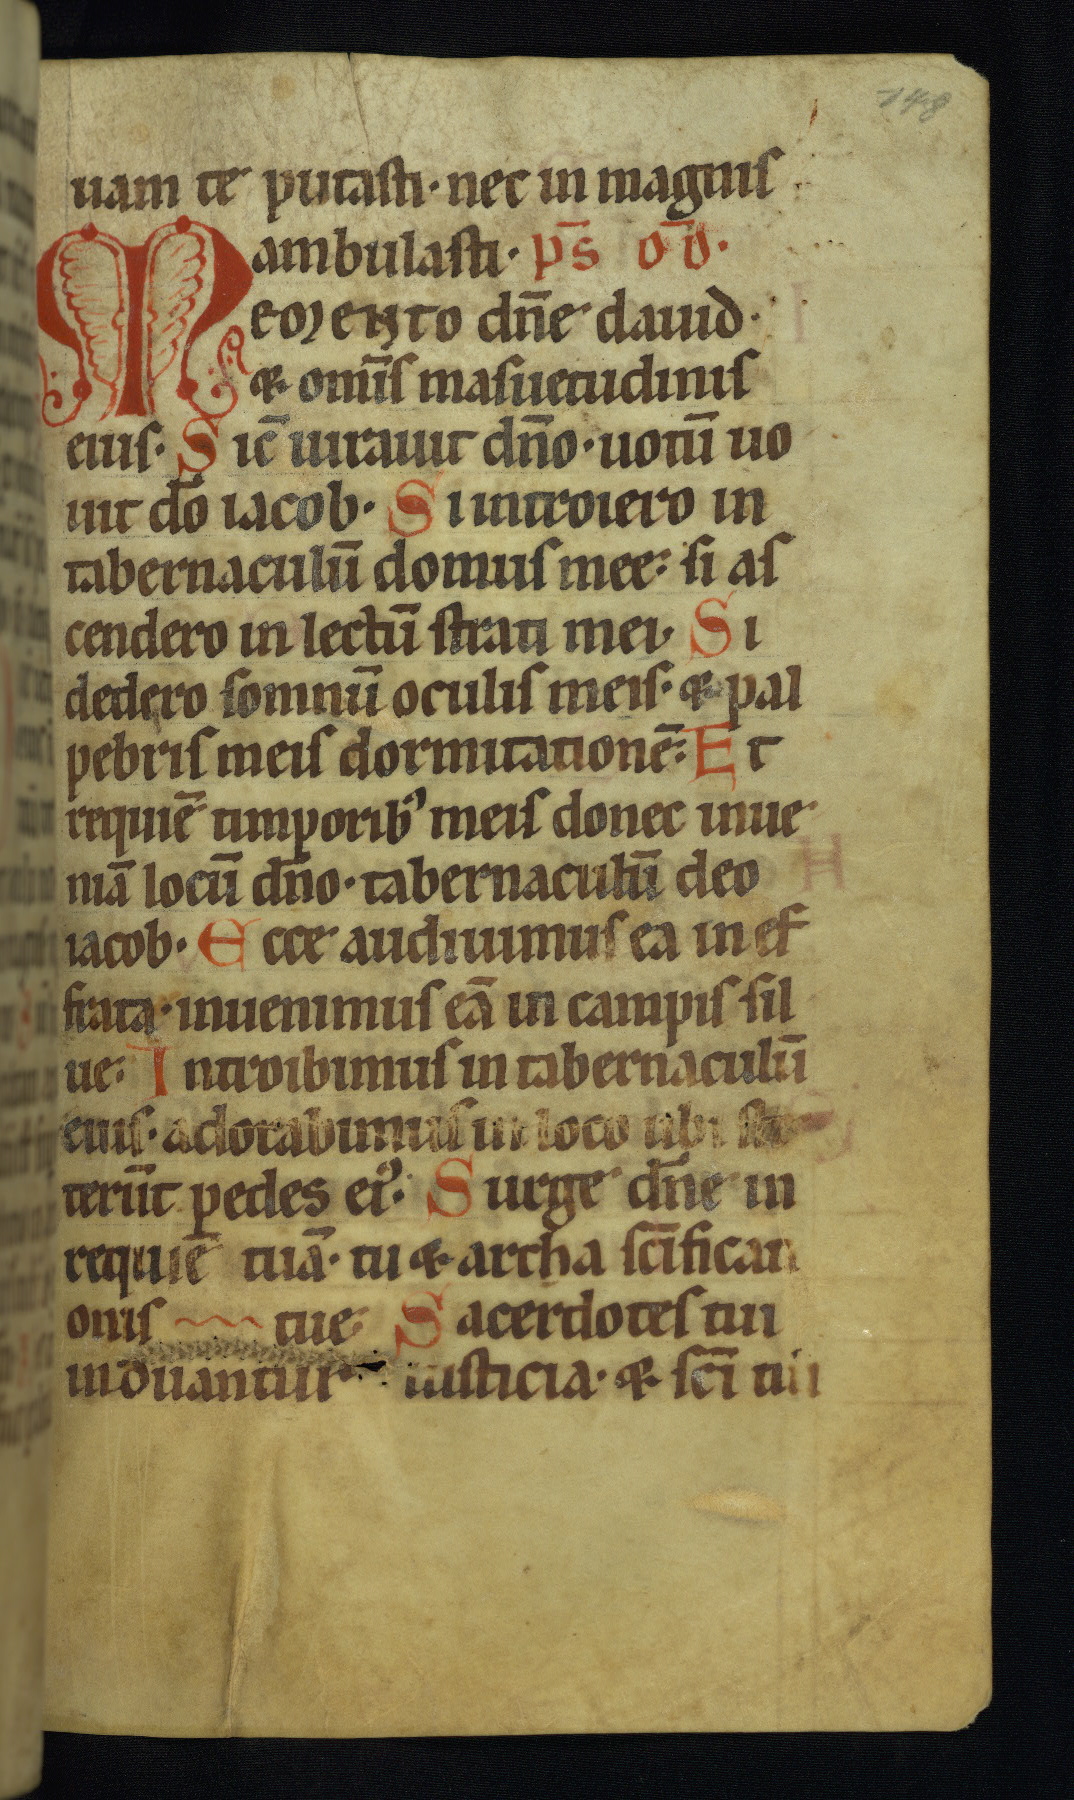 148
uam te putasti· nec in magnis
ambulasti· p̄s ōd̄·
Memento dn̄e dauid·
& omīs masuetudinis
eius· Sic̄ iurauit dn̄o· uotū uo
uit dō iacob· Si introiero in
tabernaculū domus mee: si as
cendero in lectū strati mei· Si
dedero somnū oculis meis· & pal
pebris meis dormitationē: Et
requiē timporib᾿ meis donec inue
niā locū dn̄o· tabernaculū deo
iacob· Ecce audiuimus ea in ef
frata· inuenimus eā in campis sil
ue: Introibimus in tabernaculū
eius· adorabimus in loco ubi ste
terūt pedes ei᾿: Surge dn̄e in
requiē tuā· tu & archa sc̄ifican
onis tue Sacerdotes tui
induantur iusticia· & sc̄i tui